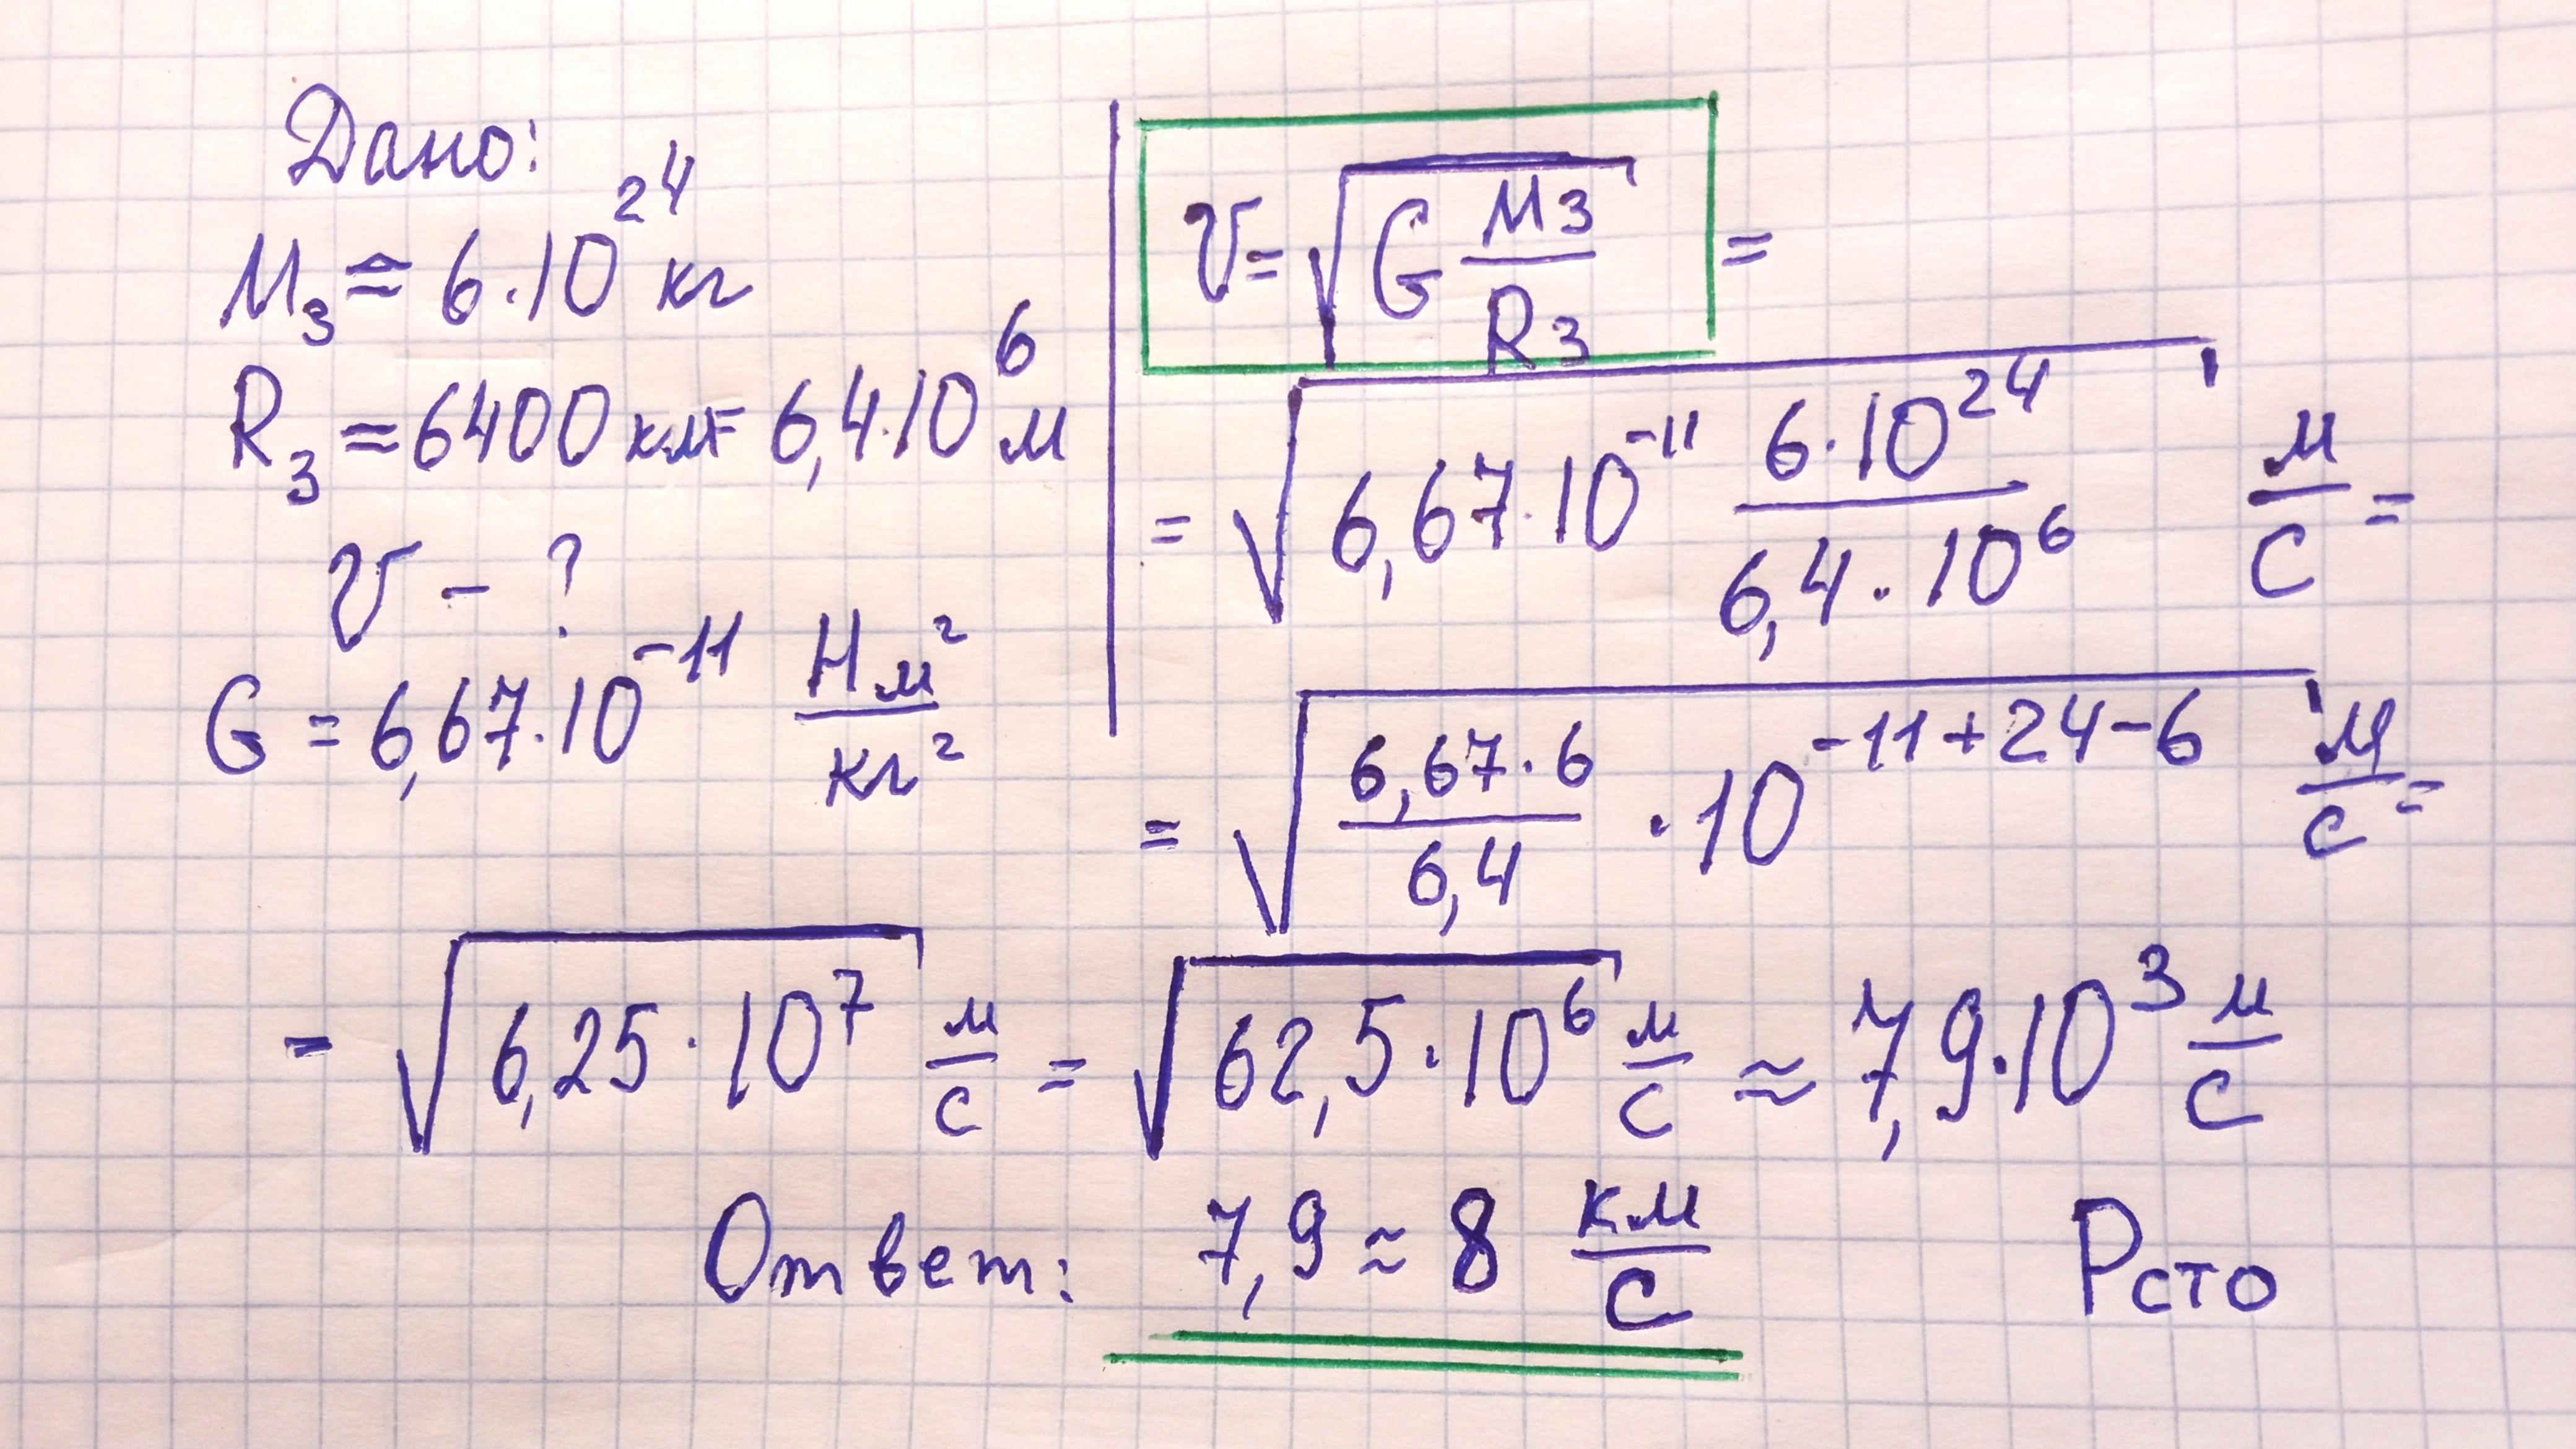 Дано:
M₃ ≈ 6·10²⁴ кг
R₃ ≈ 6400 км = 6,4·10⁶ м
v - ?
G = 6,67·10⁻¹¹ Нм²/кг²
v = √(G M₃/R₃) =
= √(6,67·10⁻¹¹ 6·10²⁴/6,4·10⁶) м/с =
= √(6,67·6/6,4 ·10⁻¹¹⁺²⁴⁻⁶) м/с =
= √(6,25·10⁷) м/с = √(62,5·10⁶) м/с ≈ 7,9·10³ м/с
Ответ: 7,9 ≈ 8 км/с
Рсто